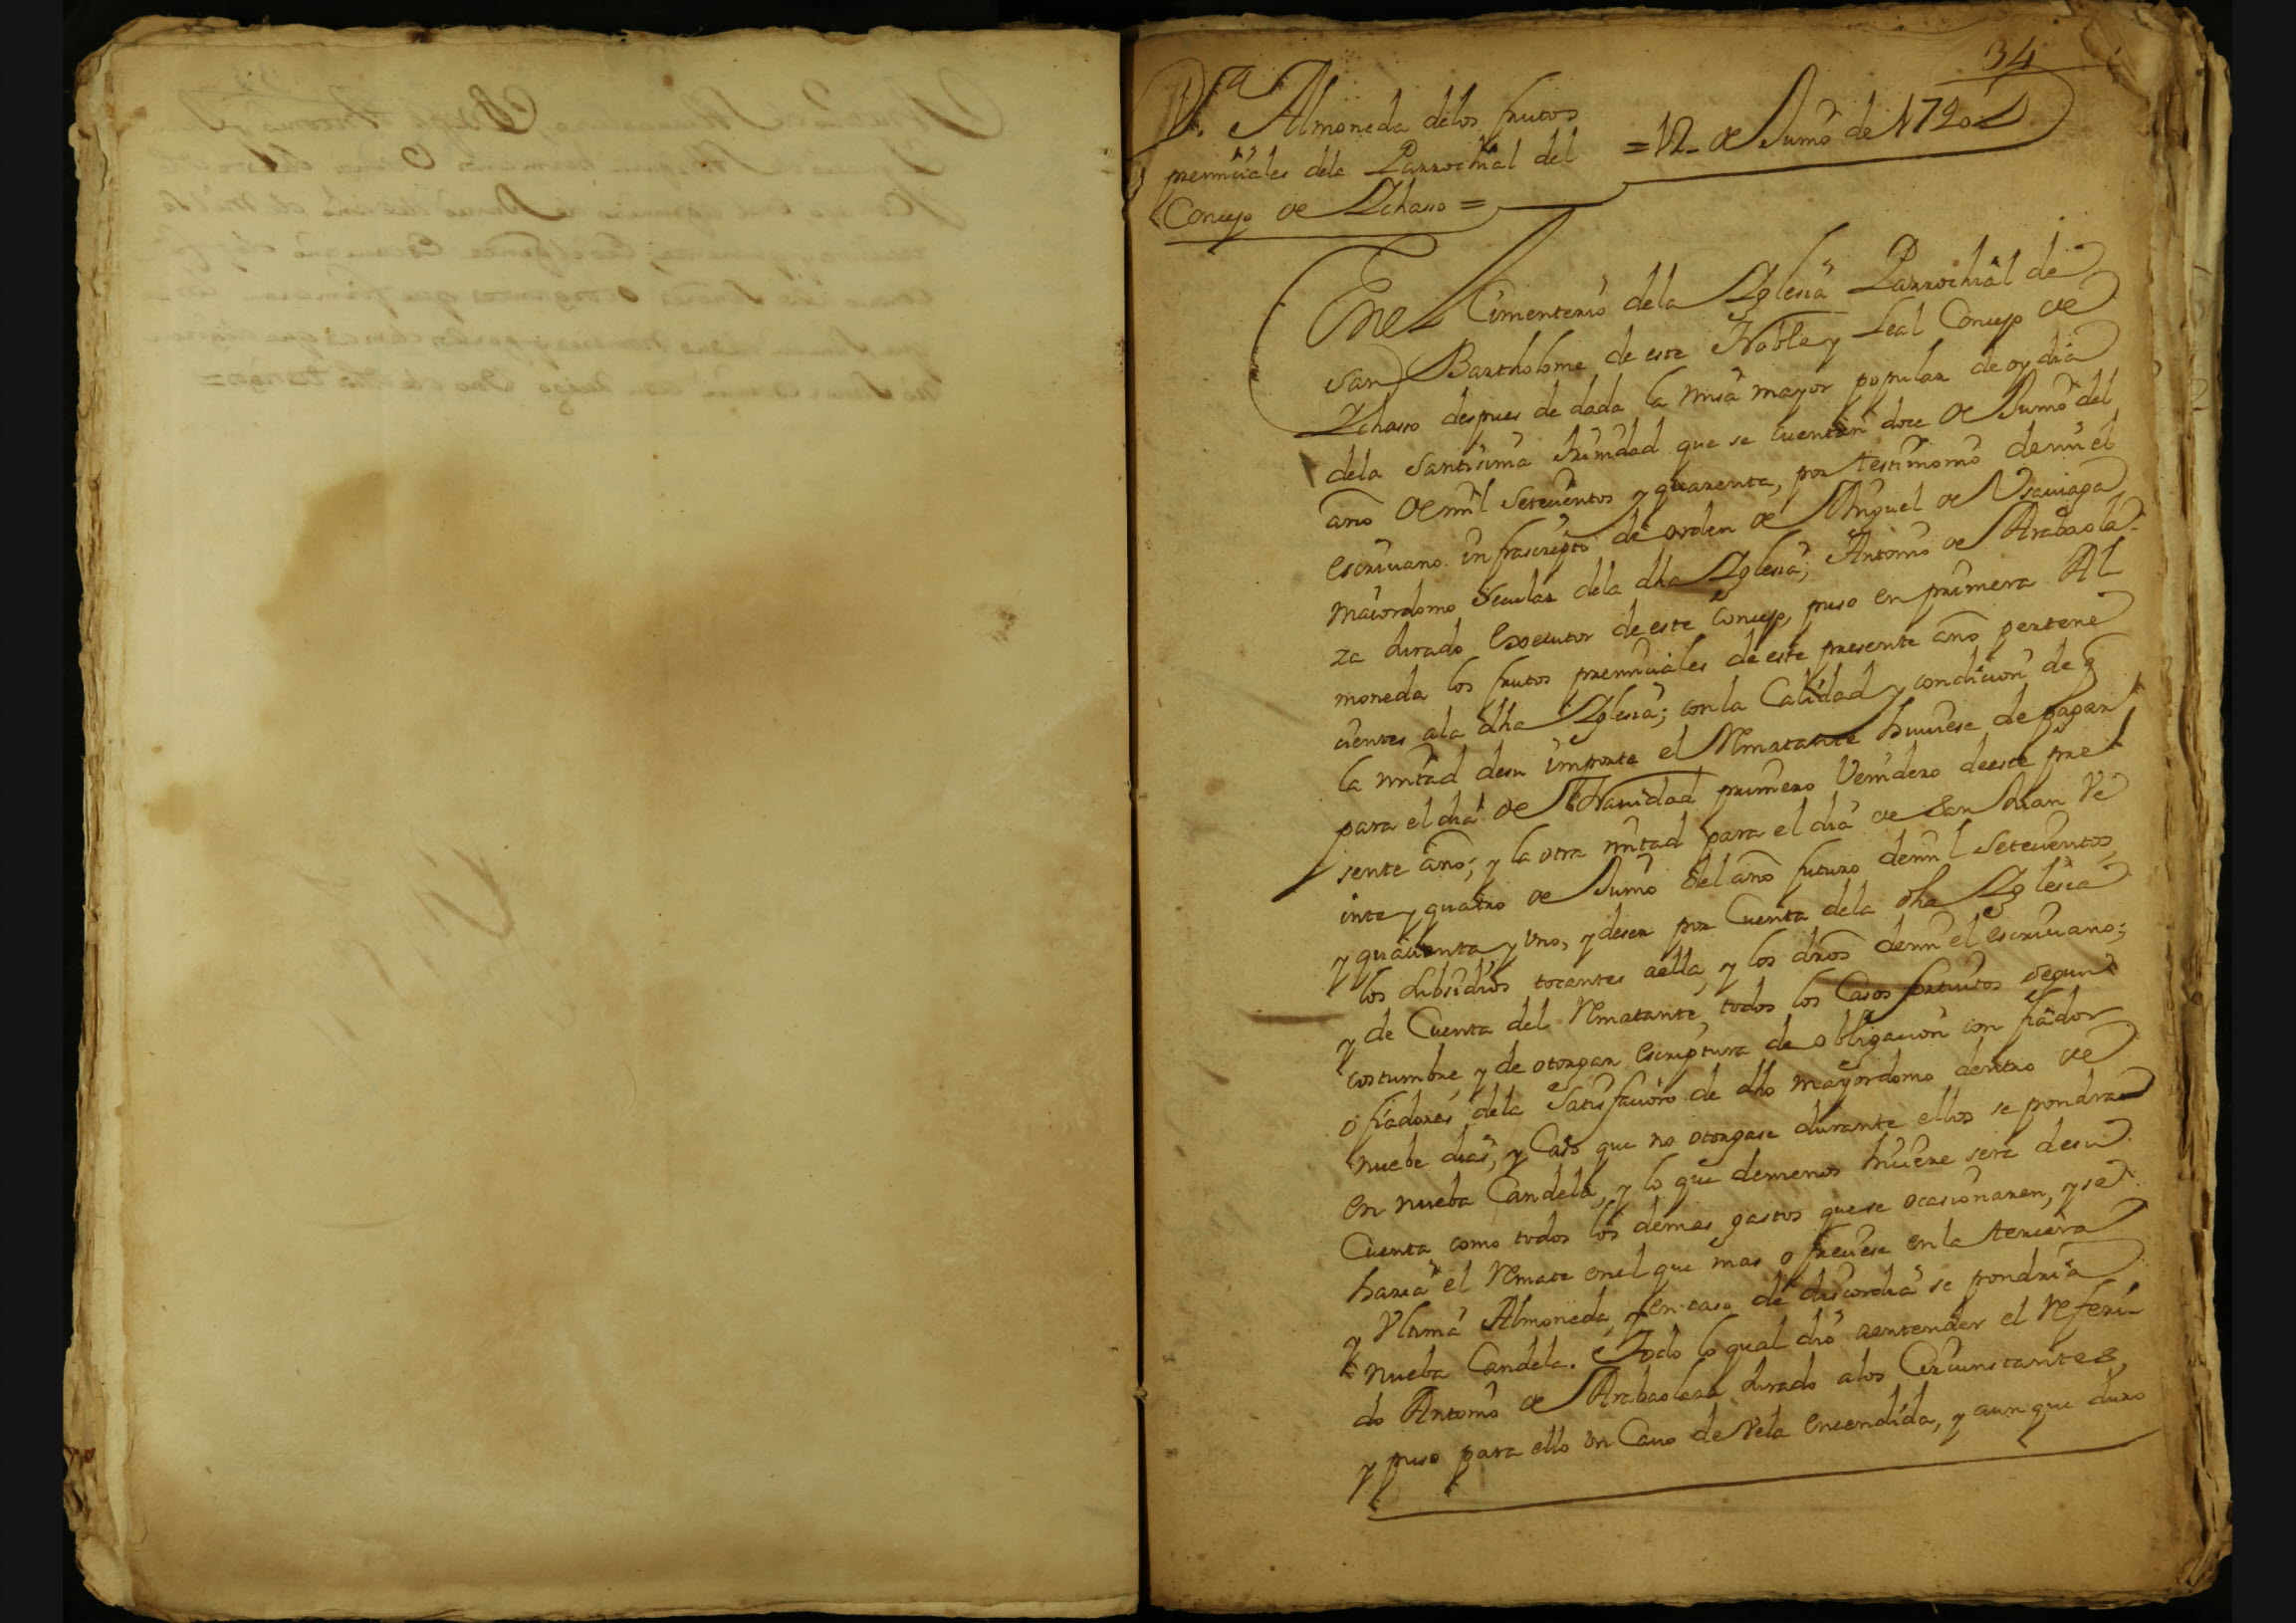 34
1.ª Almoneda delos frutos
premiciales dela Parrochial del
Concejo de Ychaso =
= 12 de Junio de 1740
En el Cimenterio dela Yglesia Parrochial de
San Bartholome de este Noble y Leal Concejo de
Ychaso despues de dada la misa mayor popular de oy dia
dela Santisima trinidad que se cuentan doce de Junio del
año de mil setecientos y quarenta, por testimonio de mi el
escrivano infrascripto de orden de Miguel de
maiordomo secular dela dha Yglesia; Antonio de Arabaola
za Jurado executor de este Concejo, puso en primera Al
moneda los frutos premiciales de este presente año pertene
cientes ala dha Yglesia; con la Calidad y condicion de q
la mitad desu importe el Rematante huviese de pagar
para el dia de Navidad primero Venidero deeste pre
sente año; y la otra mitad para el dia de San Juan Ve
inte y quatro de Junio del año futuro de mil setecientos
y quarenta y uno, y deser por Cuenta dela dha Yglesia
los subsidios tocantes aella, y los dros demi el escrivano;
y de Cuenta del Rematante, todos los Casos fortuitos segun
costumbre y de otorgar escriptura de obligacion con fiador
o fiadores dela Satisfacion de dho mayordomo dentro de
nuebe dias, y Caso que no otorgase durante ellos se pondran
en nueba Candela, y lo que demenos huviere sera desu
Cuenta como todos los demas gastos quese ocasionaren, y se
haria el Remate enel que mas ofreciese en la tercera
y Ultima Almoneda, y en caso de discordia se pondria
nueba Candela. Todo lo qual dio aentender el Referi-
do Antonio de Arabaolaza Jurado alos Circunstantes,
y puso para ello un Cavo de Vela encendida, y aunque duro